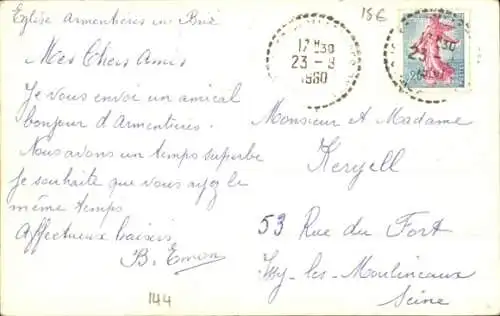 Eglise Armentières en Brie
18€
Mes Chers Amis
Je vous envoi un amical
bonjour d'Armentières.
Nous avons un temps superbe
Je souhaite que vous ayez le
même temps
Affectueux baisers
B. Emon
144
17H30
23-9
1960
17H30
23
Monsieur et Madame
Keryell
53 Rue du Fort
Issy-les-Moulineaux
Seine